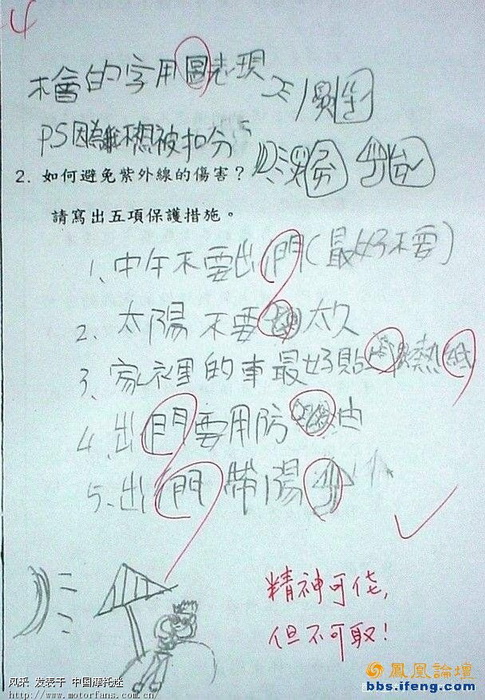 4
不會的字用圖表現
PS因為我不想被扣分
2. 如何避免紫外線的傷害？
請寫出五項保護措施。
1、中午不要出門(最好不要)
2、太陽不要太久
3、家裡的車最好貼熱紙
4、出門要用防油
5、出門帶陽
精神可佳，
但不可取！
风采 发表于 中国摩托迷
http://www.motorfans.com.cn
鳳凰論壇
bbs.ifeng.com